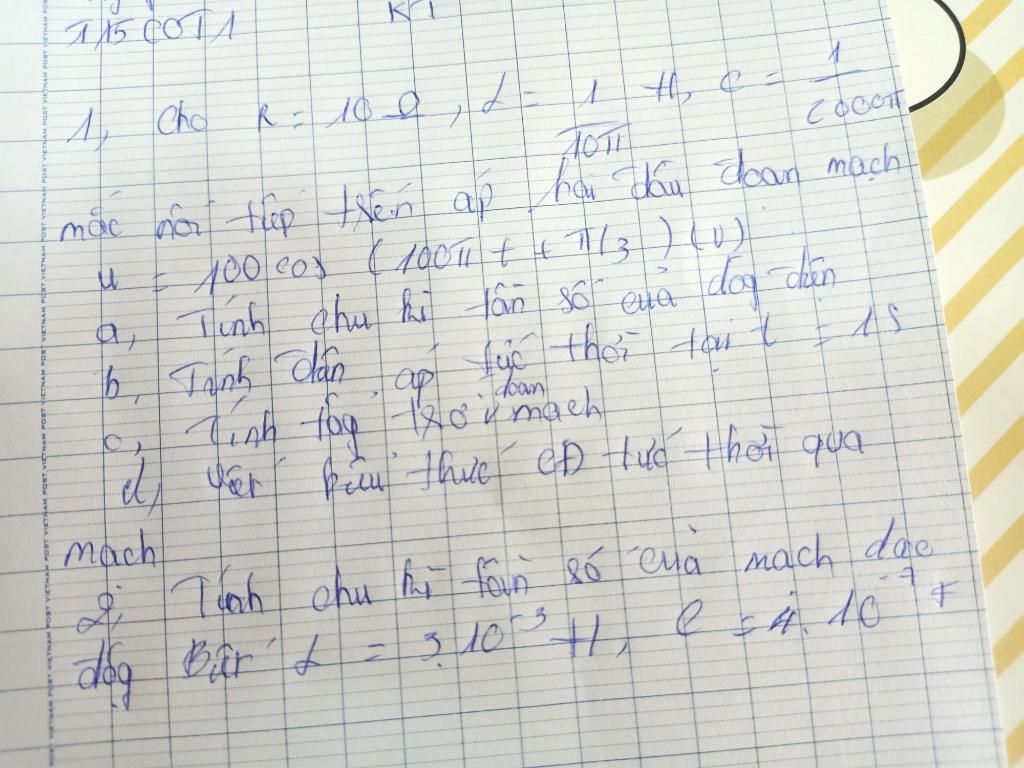 KT
1, Cho R = 10 Ω, L = 1/10π H, C = 1/2000π
mắc nối tiếp điện áp hai đầu đoạn mạch
u = 100 cos (100π t + π/3) (V)
a, Tính chu kì tần số của dòg điện
b, Tính điện áp tức thời tại t = 1s
c, Tính tổg trở đoạn mạch
d, Viết biểu thức CĐ tức thời qua
mạch
2, Tính chu kì tần số của mạch dao
độg Biết L = 3.10⁻³ H, C = 4.10⁻⁷ F
VIETNAM POST VIETNAM POST VIETNAM POST